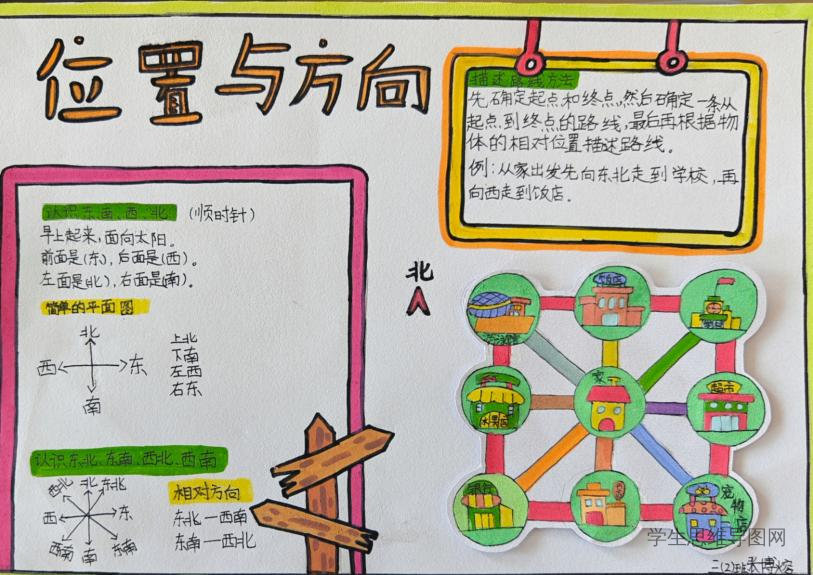 位置与方向
描述路线方法
先确定起点和终点,然后确定一条从
起点到终点的路线,最后再根据物
体的相对位置描述路线。
例:从家出发先向东北走到学校,再
向西走到饭店。
认识东、南、西、北 (顺时针)
早上起来,面向太阳。
前面是(东),后面是(西)。
左面是(北),右面是(南)。
简单的平面图
北
西 东
南
上北
下南
左西
右东
认识东北、东南、西北、西南
西北 北 东北
西 东
西南 南 东南
相对方向
东北—西南
东南—西北
北
家
超市
水果店
银行
宠物店
学生思维导图网
二(2)班